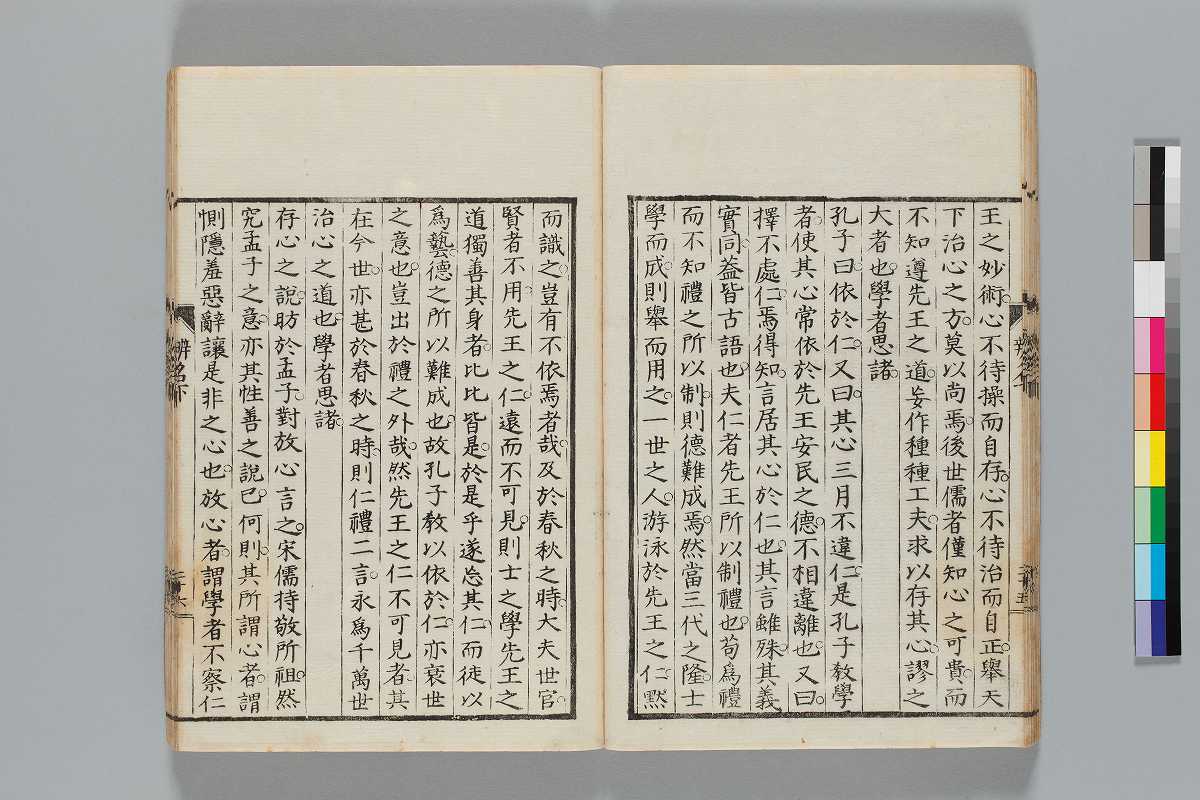 王之妙術。心不待操而自存。心不待治而自正。舉天
下治心之方。莫以尚焉。後世儒者僅知心之可貴。而
不知遵先王之道。妄作種種工夫。求以存其心。謬之
大者也。學者思諸。
孔子曰。依於仁。又曰。其心三月不違仁。是孔子教學
者。使其心常依於先王安民之德。不相違離也。又曰。
擇不處仁。焉得知。言居其心於仁也。其言雖殊。其義
實同。蓋皆古語也。夫仁者先王所以制禮也。苟爲禮
而不知禮之所以制。則德難成焉。然當三代之隆。士
學而成。則舉而用之。一世之人。游泳於先王之仁。黙
而識之。豈有不依焉者哉。及於春秋之時。大夫世官。
賢者不用。先王之仁。遠而不可見。則士之學先王之
道獨善其身者。比比皆是。於是乎遂忘其仁。而徒以
爲藝。德之所以難成也。故孔子教以依於仁。亦衰世
之意也。豈出於禮之外哉。然先王之仁不可見者。其
在今世。亦甚於春秋之時。則仁禮二言。永爲千萬世
治心之道也。學者思諸。
存心之說。昉於孟子。對放心言之。宋儒持敬所祖。然
究孟子之意。亦其性善之說已。何則其所謂心者。謂
惻隱羞惡辭讓是非之心也。放心者。謂學者不察仁
辨名下
二十六